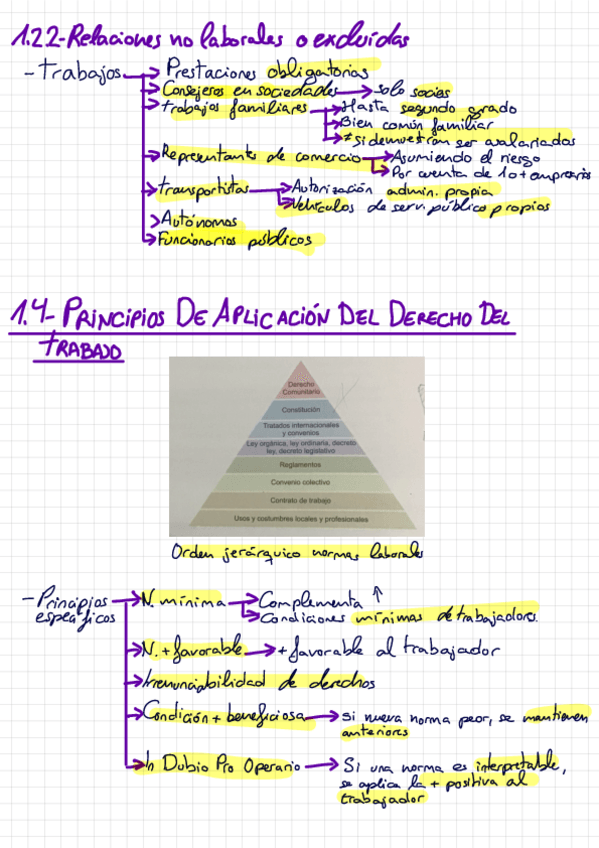 1.2.2-Relaciones no laborales o excluídas
- Trabajos → Prestaciones obligatorias
→ Consejeros en sociedades → solo socios
→ trabajos familiares → Hasta segundo grado
→ Bien común familiar
→ ≠ si demuestran ser asalariados
→ Representantes de comercio → Asumiendo el riesgo
→ Por cuenta de 1 o + empresarios
→ transportistas → Autorización admin. propia
→ Vehículos de serv. público propios
→ Autónomos
→ Funcionarios públicos
1.4- PRINCIPIOS DE APLICACIÓN DEL DERECHO DEL
TRABAJO
Derecho
Comunitario
Constitución
Tratados internacionales
y convenios
Ley orgánica, ley ordinaria, decreto
ley, decreto legislativo
Reglamentos
Convenio colectivo
Contrato de trabajo
Usos y costumbres locales y profesionales
Orden jerárquico normas laborales
- Principios → N. mínima → Complementa ↑
específicos → Condiciones mínimas de trabajadores.
→ N. + favorable → + favorable al trabajador
→ Irrenunciabilidad de derechos
→ Condición + beneficiosa → si nueva norma peor, se mantienen
anteriores
→ In Dubio Pro Operario → Si una norma es interpretable,
se aplica la + positiva al
trabajador